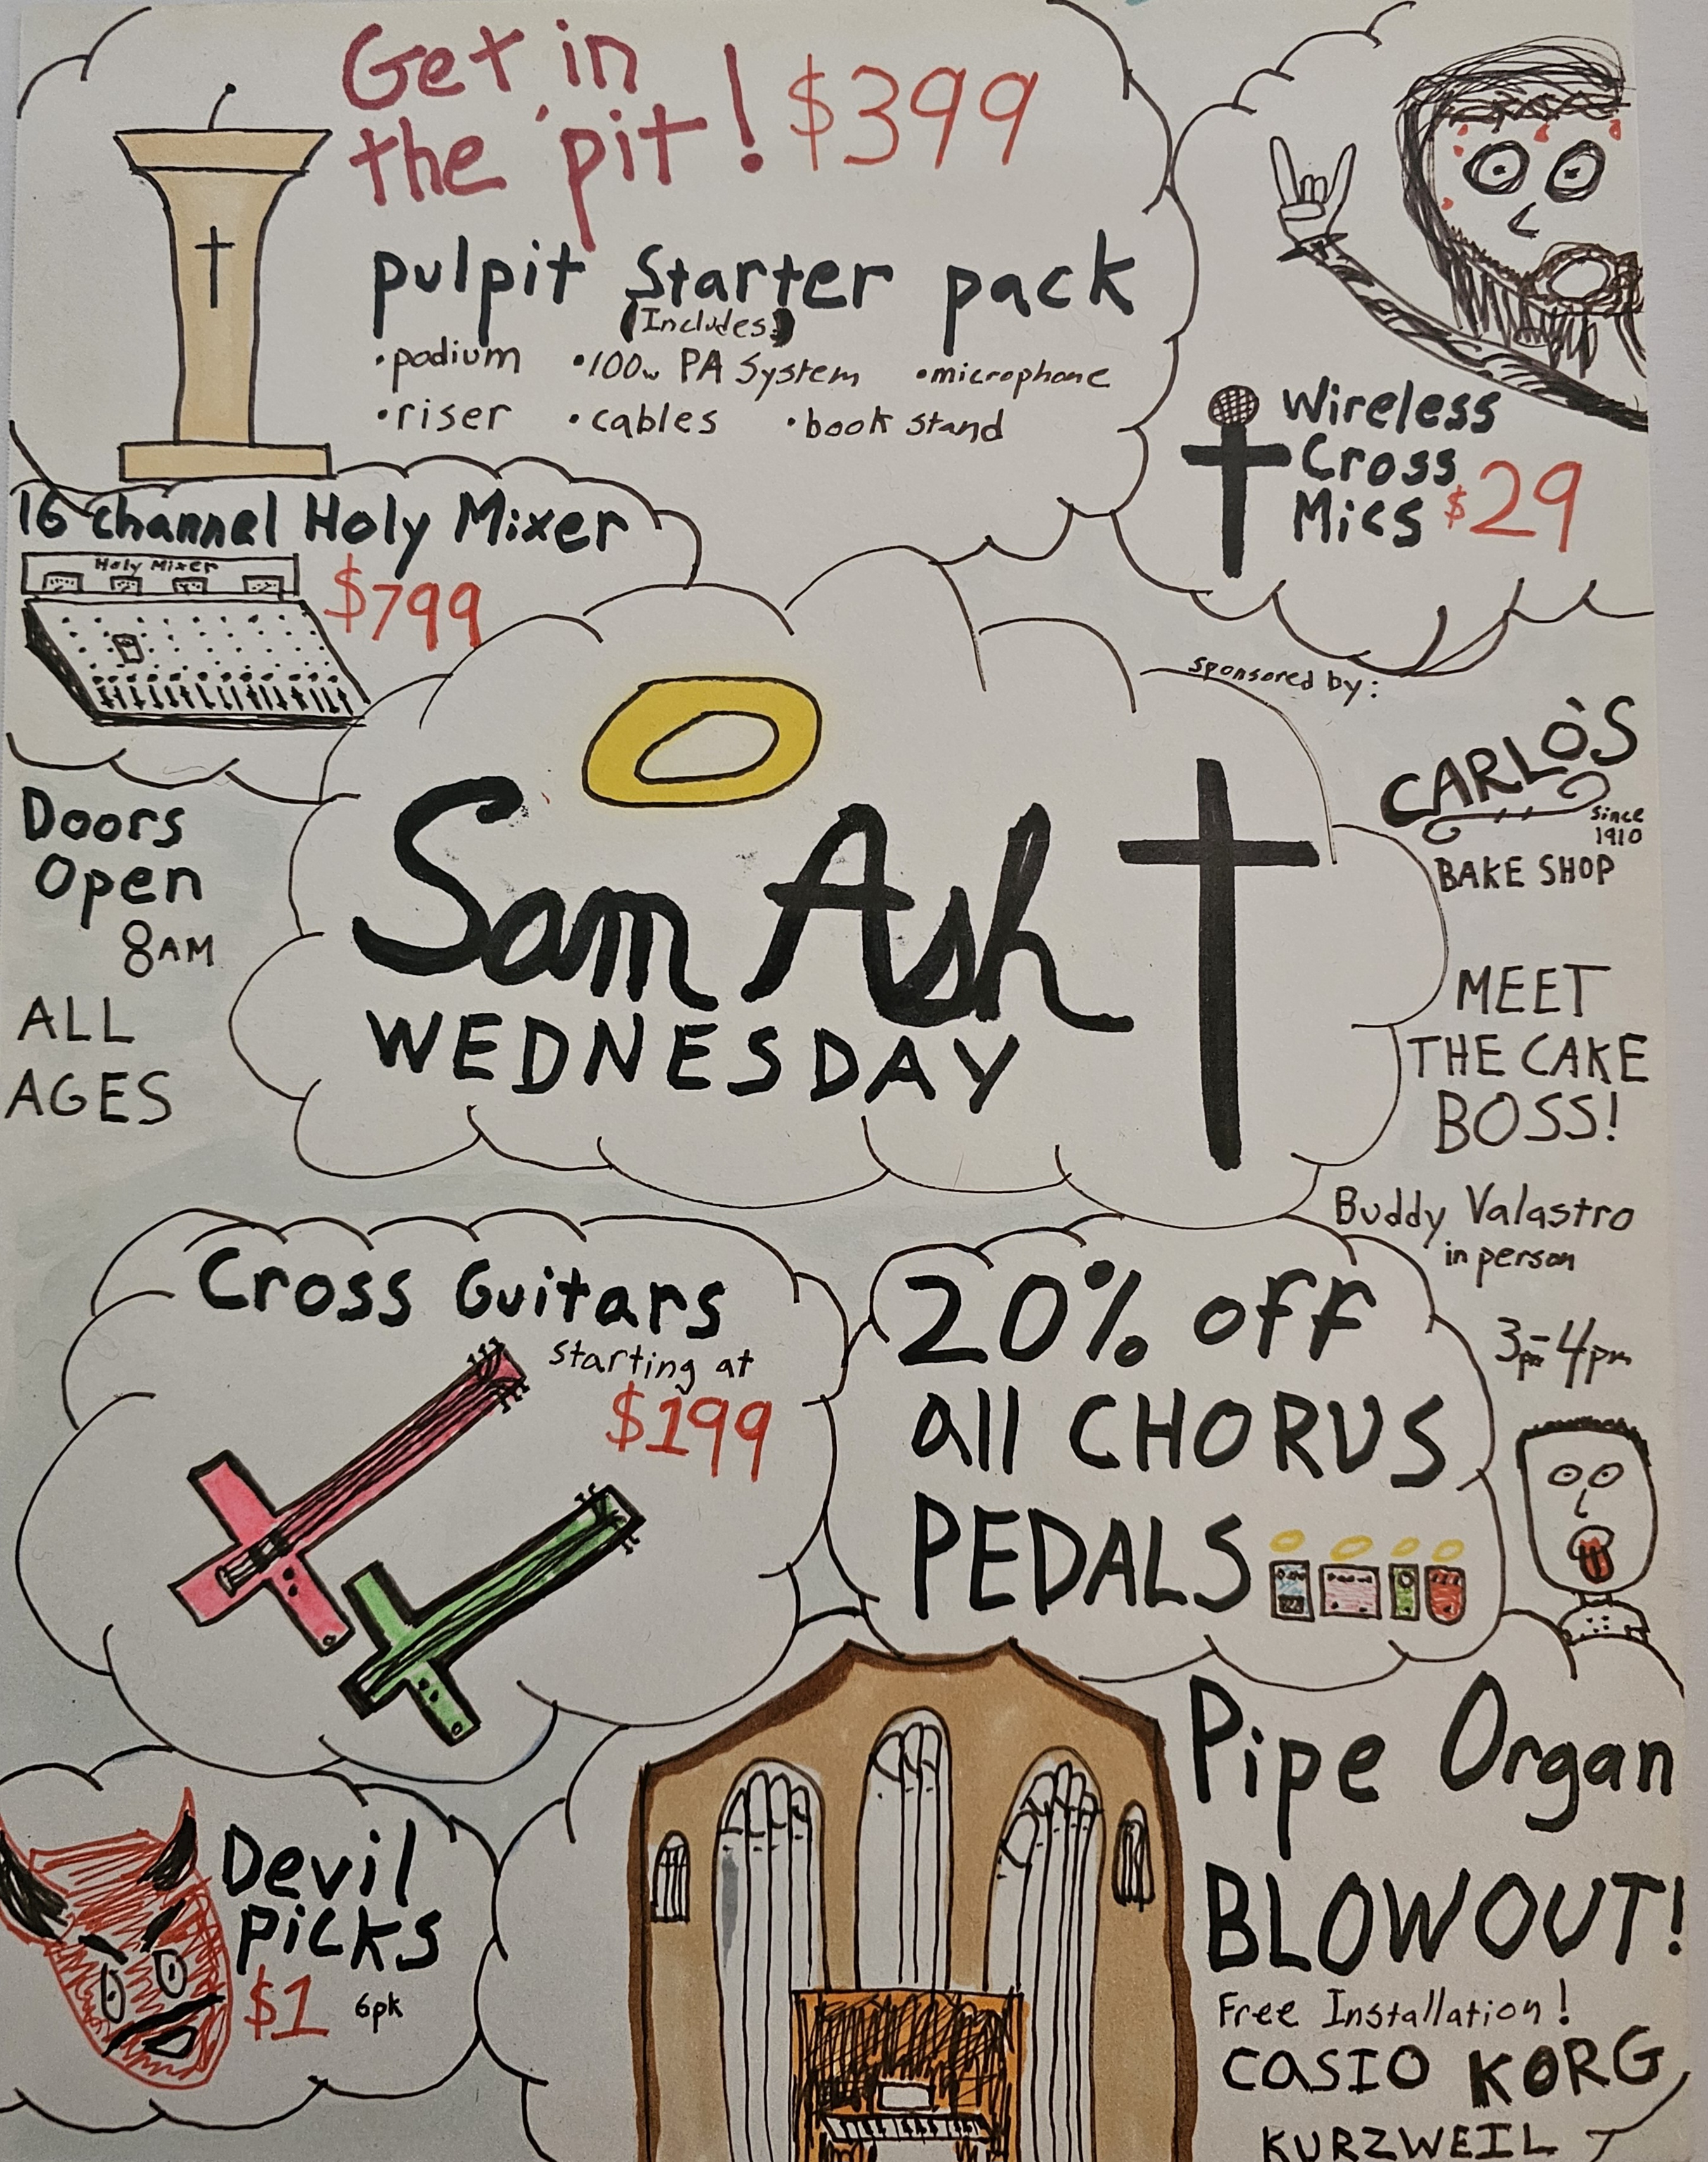 Get in
the 'pit! $399
pulpit Starter pack
(Includes)
•podium •100w PA System •microphone
•riser •cables •book stand
Wireless
Cross
Mics $29
16 channel Holy Mixer
Holy Mixer
$799
sponsored by:
CARLO'S
since
1910
BAKE SHOP
Doors
Open
8AM
ALL
AGES
Sam Ash
WEDNESDAY
MEET
THE CAKE
BOSS!
Buddy Valastro
in person
3pm-4pm
Cross Guitars
Starting at
$199
20% off
all CHORUS
PEDALS
Devil
Picks
$1 6pk
Pipe Organ
BLOWOUT!
Free Installation!
CASIO KORG
KURZWEIL